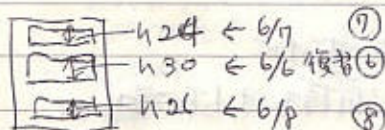 h24 ← 6/7 ⑦
h30 ← 6/6 復習 ⑥
h26 ← 6/8 ⑧